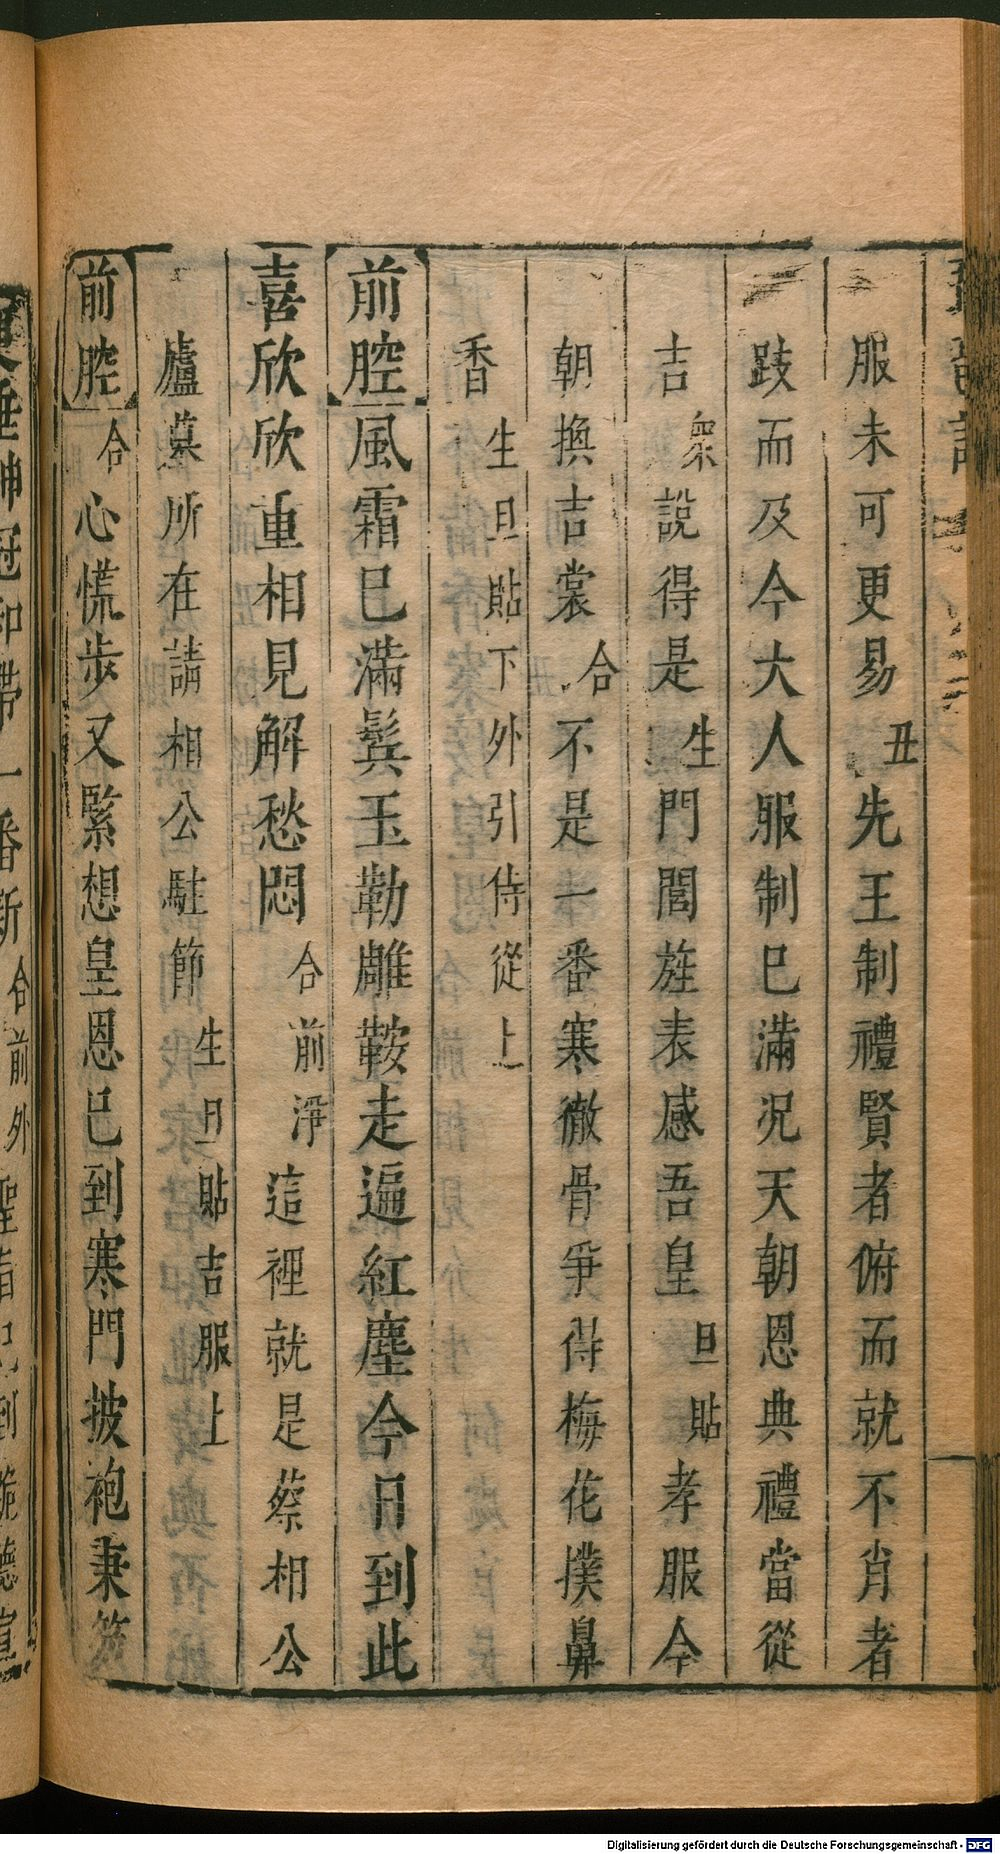 服未可更易丑先王制禮賢者俯而就不肖者
跂而及今大人服制已滿況天朝恩典禮當從
吉衆說得是生門閭旌表感吾皇旦貼孝服今
朝換吉裳合不是一番寒徹骨爭得梅花撲鼻
香生旦貼下外引侍從上
前腔風霜已滿鬂玉勒雕鞍走遍紅塵今日到此
喜欣欣重相見解愁悶合前淨這裡就是蔡相公
廬墓所在請相公駐節生旦貼吉服上
前腔合心慌步又緊想皇恩已到寒門披袍秉笏
垂紳冠和帶一番新合前外聖旨已到跪聽宣
Digitalisierung gefördert durch die Deutsche Forschungsgemeinschaft - DFG